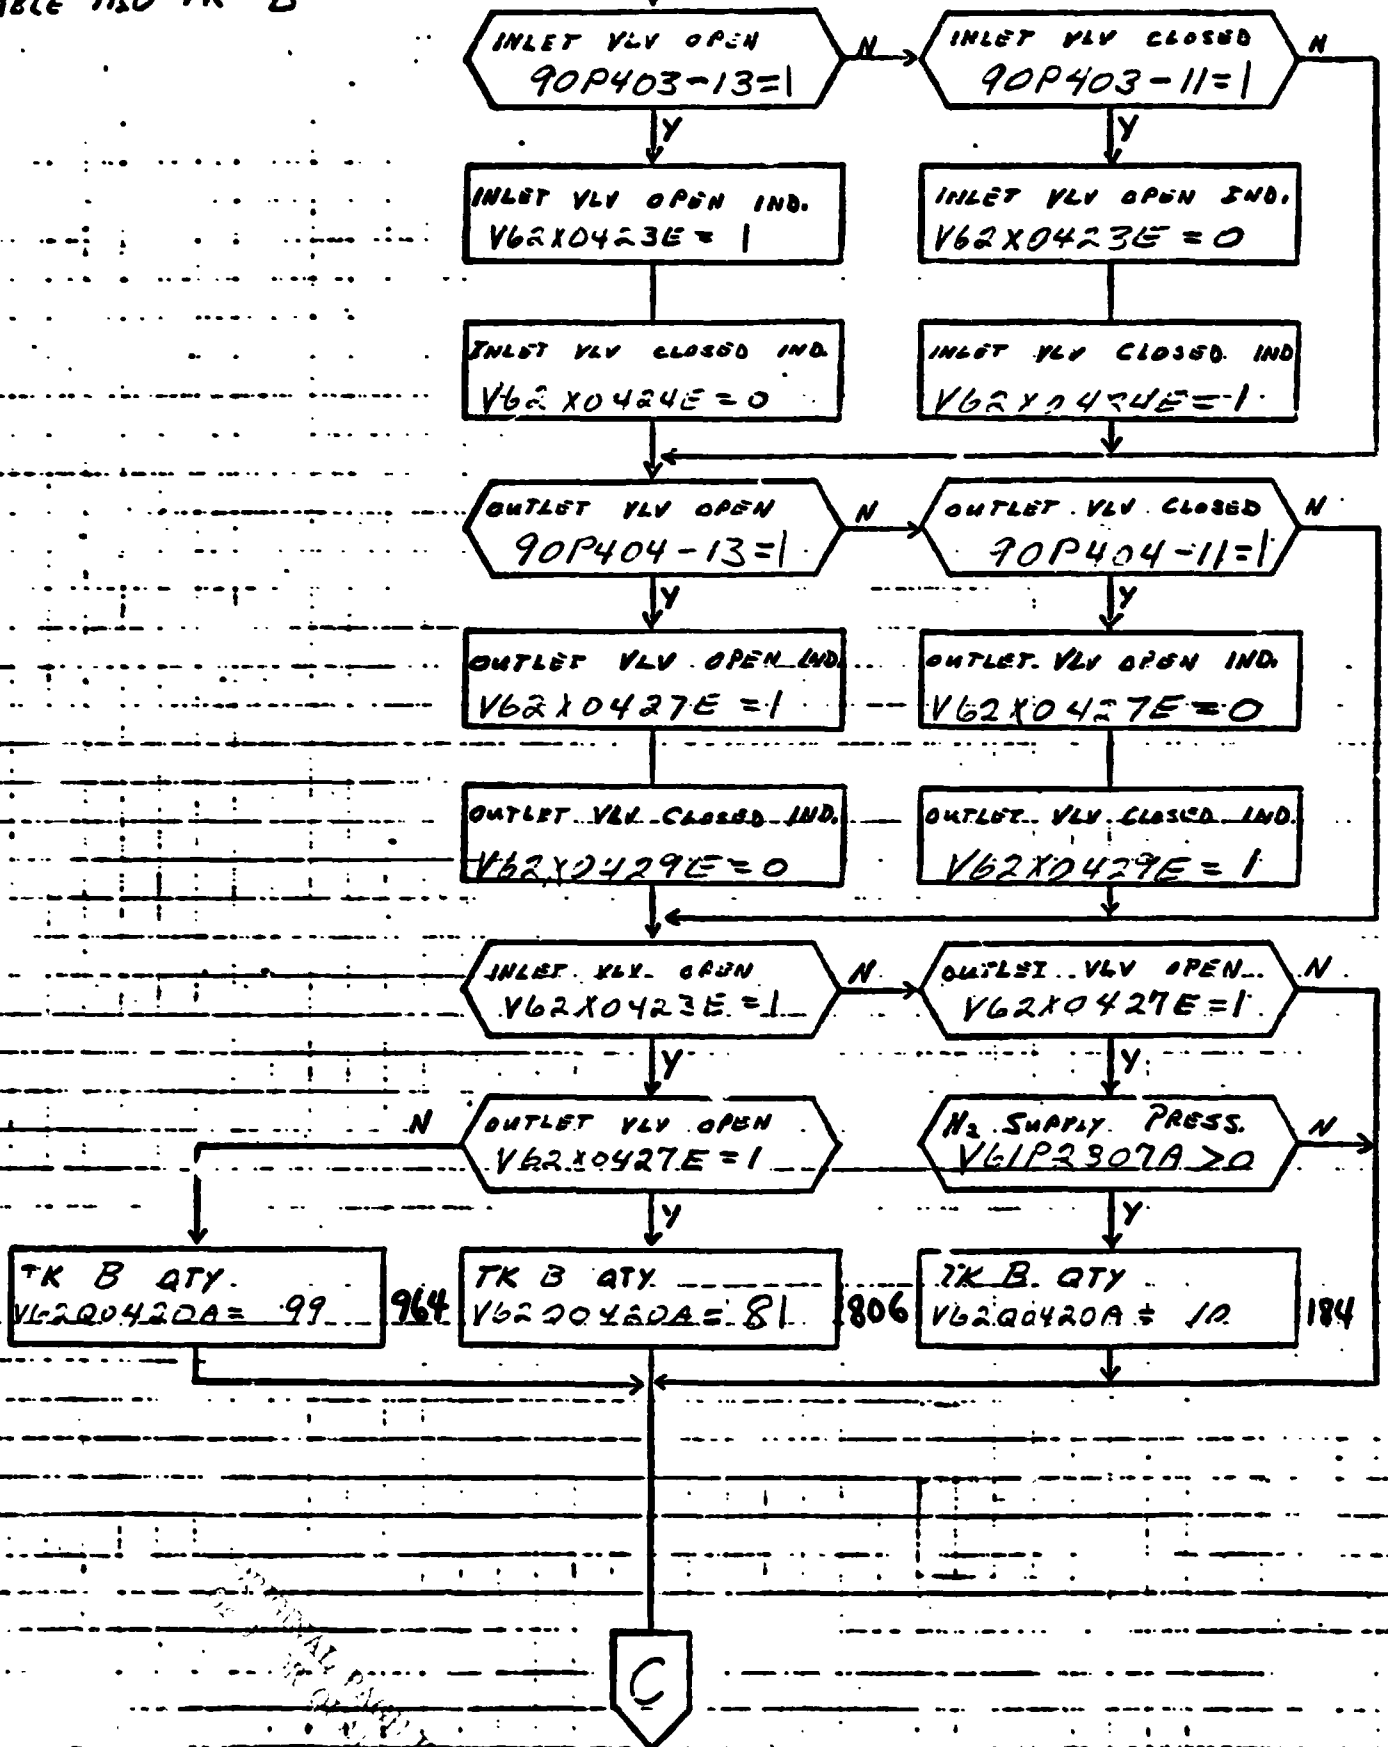 INLET VLV OPEN
90P403-13=1
N
INLET VLV CLOSED
90P403-11=1
N
Y
Y
INLET VLV OPEN IND.
V62X0423E = 1
INLET VLV OPEN IND.
V62X0423E = 0
INLET VLV CLOSED IND.
V62X0424E = 0
INLET VLV CLOSED IND
V62X0424E = 1
OUTLET VLV OPEN
90P404-13=1
N
OUTLET VLV CLOSED
90P404-11=1
N
Y
Y
OUTLET VLV OPEN IND.
V62X0427E = 1
OUTLET VLV OPEN IND.
V62X0427E = 0
OUTLET VLV CLOSED IND.
V62X0429E = 0
OUTLET VLV CLOSED IND.
V62X0429E = 1
INLET VLV OPEN
V62X0423E = 1
N
OUTLET VLV OPEN
V62X0427E = 1
N
Y
Y
N
OUTLET VLV OPEN
V62X0427E = 1
H2 SUPPLY PRESS.
V61P2307A >0
N
Y
Y
TK B QTY
V62Q0420A = 99
964
TK B QTY
V62Q0420A = 81
806
TK B QTY
V62Q0420A =
184
C